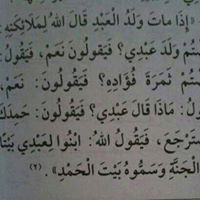 «إِذَا ماتَ وَلَدُ الْعَبْدِ قَالَ اللهُ لِمَلَائِكَتِهِ
ـتُمْ وَلَدَ عَبْدِي؟ فَيَقُولُونَ نَعَمْ، فَيَقُولُ
ـتُمْ ثَمَرَةَ فُؤَادِهِ؟ فَيَقُولُونَ: نَعَمْ،
ـولُ: مَاذَا قَالَ عَبْدِي؟ فَيَقُولُونَ: حَمِدَكَ
ـتَرْجَعَ، فَيَقُولُ اللهُ: ابْنُوا لِعَبْدِي بَيْتًا
الْجَنَّةِ وَسَمُّوهُ بَيْتَ الْحَمْدِ». (٢)